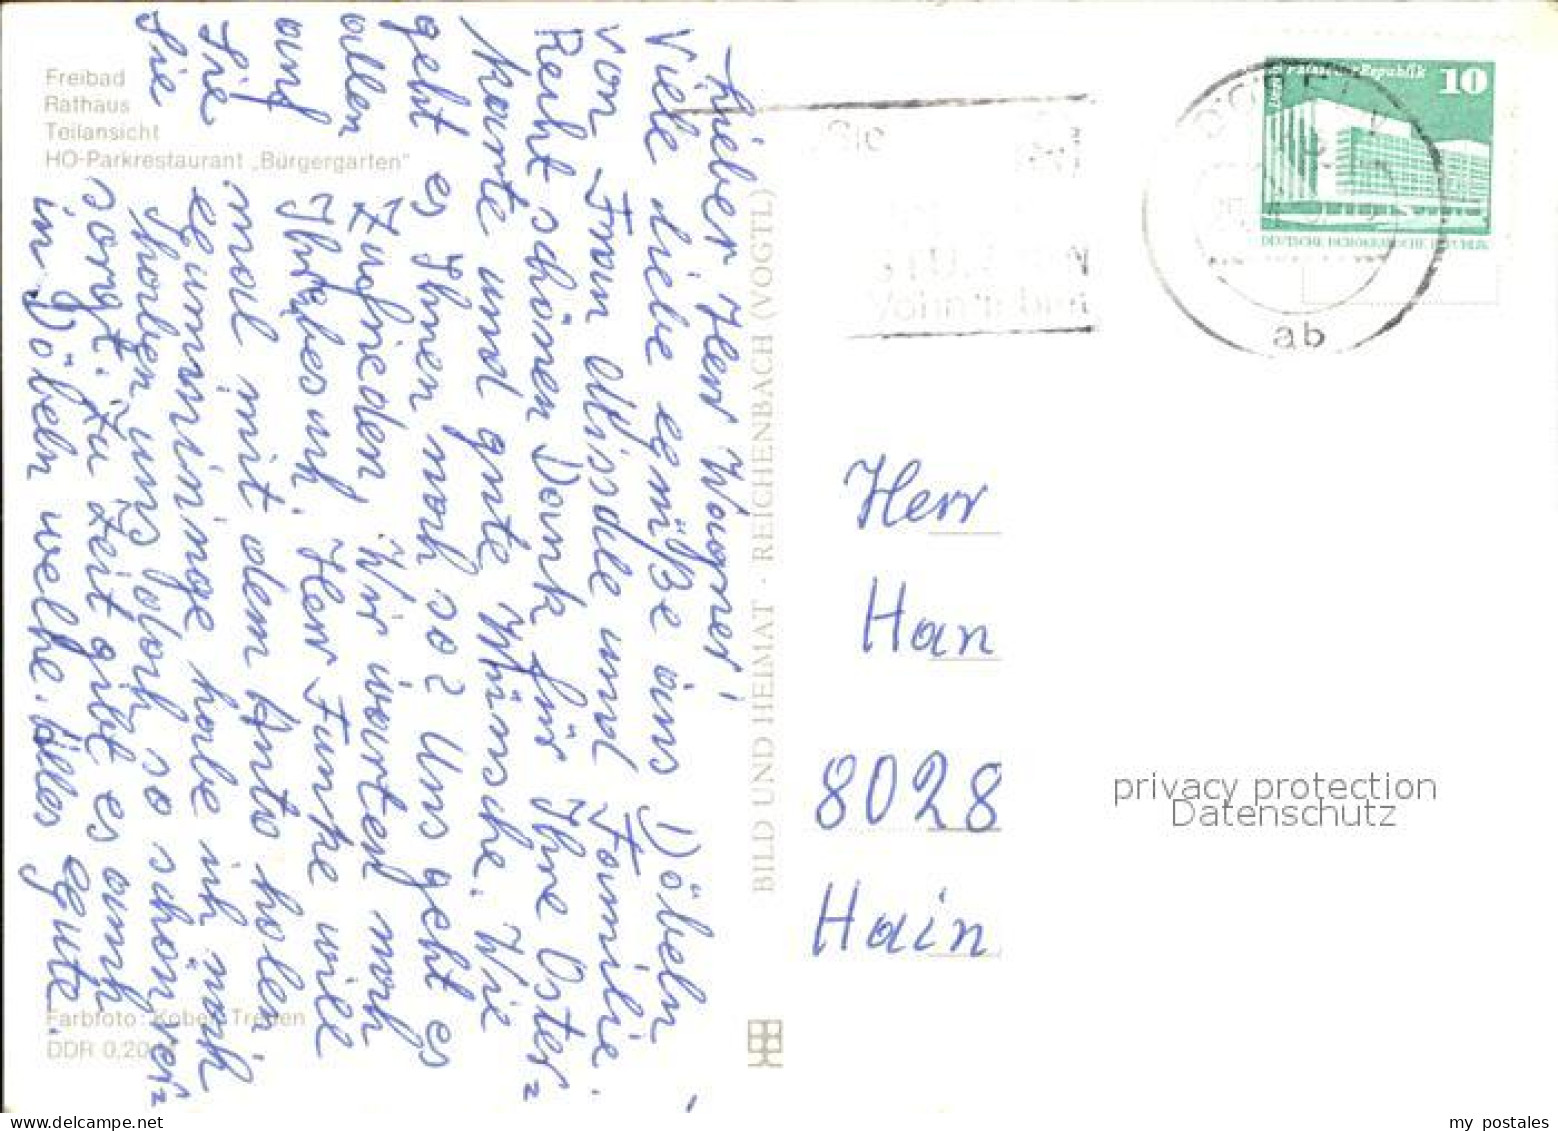 Freibad
Rathaus
Teilansicht
HO-Parkrestaurant „Bürgergarten"
Lieber Herr Wagner!
Viele liebe Grüße aus Döbeln
von Frau und Familie.
Recht schönen Dank für Ihre Oster=
karte und gute Wünsche. Wie
geht es Ihnen noch so? Uns geht es
allen Zufrieden. Wir warten noch
auf Ihrebesuch. Herr Funke will
Sie mal mit dem Auto holen
Sie habe ich noch
haben uns doch so schön ver=
sorgt. Zu Zeit gibt es auch
in Döbeln welche. Alles gute.
Farbfoto: Kober, Treuen
DDR 0,20
BILD UND HEIMAT · REICHENBACH (VOGTL)
Palast der Republik 10
DEUTSCHE DEMOKRATISCHE REPUBLIK
ab
Herr
Han
8028
Hain
privacy protection
Datenschutz
my postales